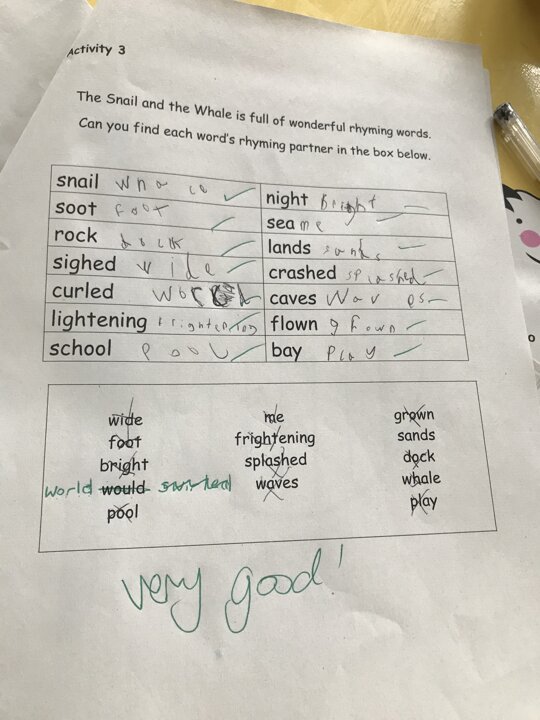 Activity 3
The Snail and the Whale is full of wonderful rhyming words.
Can you find each word's rhyming partner in the box below.
snail
night Bright
soot foot
sea me
rock dock
lands sands
sighed wide
crashed splashed
curled
caves Wav es
lightening frightening
flown grown
school Pool
bay Play
wide me grown
foot frightening sands
bright splashed dock
world would swirled waves whale
pool play
very good!